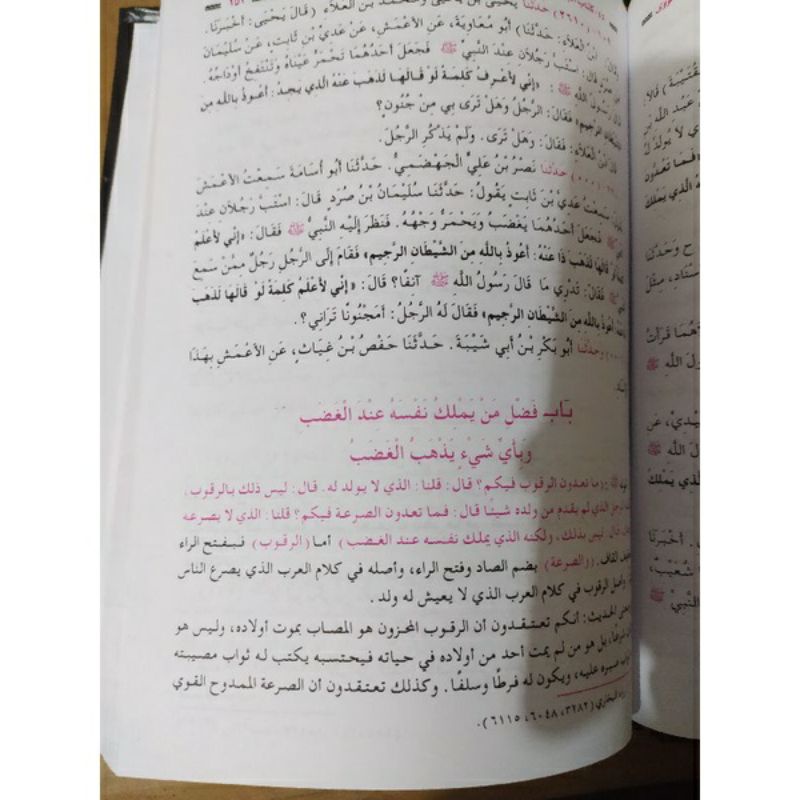 ٤٥ - كتاب
٢٥١
١٠٩ - (٢٦١٠) حدثنا يحيى بن يحيى ومحمد بن العلاء (قال يحيى: أخبرنا.
وقال ابن العلاء: حدثنا) أبو معاوية، عن الأعمش، عن عدي بن ثابت، عن سليمان
بن صرد قال: استب رجلان عند النبي ﷺ فجعل أحدهما تحمر عيناه وتنتفخ أوداجه.
قال رسول الله ﷺ: «إني لأعرف كلمة لو قالها لذهب عنه الذي يجد: أعوذ بالله من
الشيطان الرجيم» فقال: الرجل وهل ترى بي من جنون؟
قال ابن العلاء: فقال: وهل ترى. ولم يذكر الرجل.
(٠٠٠) حدثنا نصر بن علي الجهضمي. حدثنا أبو أسامة سمعت الأعمش
يقول: سمعت عدي بن ثابت يقول: حدثنا سليمان بن صرد قال: استب رجلان عند
النبي ﷺ فجعل أحدهما يغضب ويحمر وجهه. فنظر إليه النبي ﷺ فقال: «إني لأعلم
كلمة لو قالها لذهب ذا عنه: أعوذ بالله من الشيطان الرجيم» فقام إلى الرجل رجل ممن سمع
النبي ﷺ فقال: تدري ما قال رسول الله ﷺ آنفا؟ قال: «إني لأعلم كلمة لو قالها لذهب
ذا عنه أعوذ بالله من الشيطان الرجيم» فقال له الرجل: أمجنونا تراني؟.
(٠٠٠) وحدثنا أبو بكر بن أبي شيبة. حدثنا حفص بن غياث، عن الأعمش بهذا
باب فضل من يملك نفسه عند الغضب
وبأي شيء يذهب الغضب
قوله ﷺ: (ما تعدون الرقوب فيكم؟ قال: قلنا: الذي لا يولد له. قال: ليس ذلك بالرقوب.
الرجل الذي لم يقدم من ولده شيئا قال: فما تعدون الصرعة فيكم؟ قلنا: الذي لا يصرعه
الرجال قال: ليس بذلك، ولكنه الذي يملك نفسه عند الغضب) أما (الرقوب) فبفتح الراء
وتخفيف القاف. (والصرعة) بضم الصاد وفتح الراء، وأصله في كلام العرب الذي يصرع الناس
وأصل الرقوب في كلام العرب الذي لا يعيش له ولد.
ومعنى الحديث: أنكم تعتقدون أن الرقوب المحزون هو المصاب بموت أولاده، وليس هو
شرعا، بل هو من لم يمت أحد من أولاده في حياته فيحتسبه يكتب له ثواب مصيبته
وثواب صبره عليه، ويكون له فرطا وسلفا. وكذلك تعتقدون أن الصرعة الممدوح القوي
رواه البخاري (٣٢٨٢، ٦٠٤٨، ٦١١٥).
قتيبة) قالا:
عبد الله بن
ي لا يولد له
«فما تعدون
ه الذي يملك
ح وحدثنا
سناد، مثل
هما قرأت
ول الله ﷺ
يدي، عن
ل الله ﷺ
ي يملك
. أخبرنا
شعيب،
النبي ﷺ